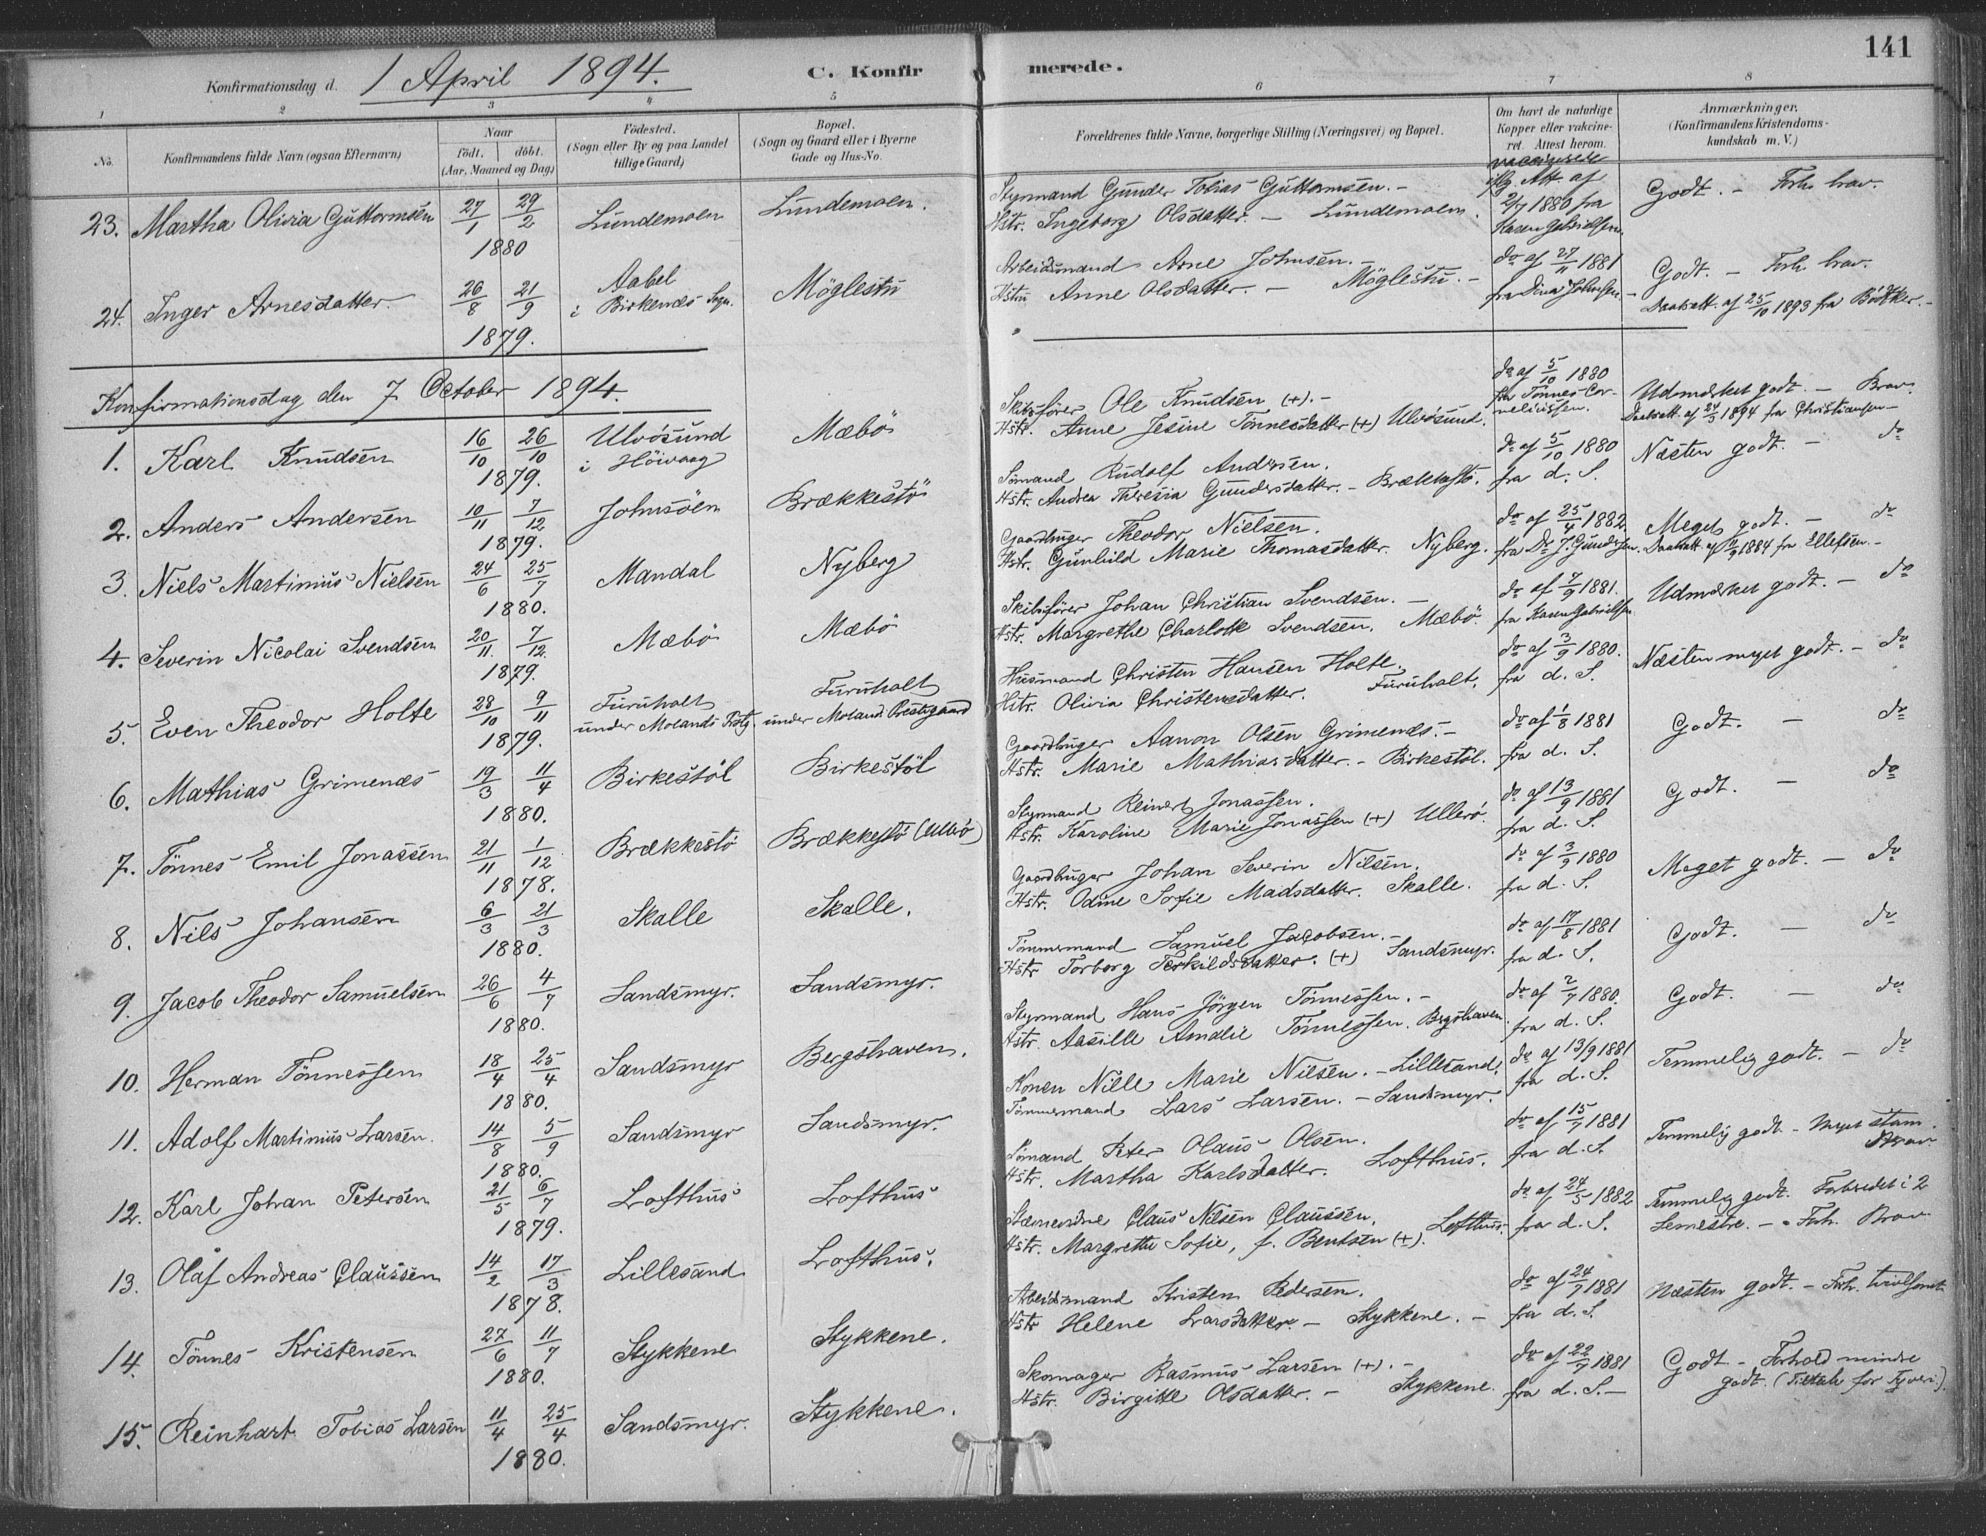 141
Konfirmationsdag d. 1 April 1894. C. Konfirmerede.
1 2 3 4 5 6 7 8
No. Konfirmandens fulde Navn (ogsaa Efternavn) Naar födt. döbt. (Aar, Maaned og Dag) Födested. (Sogn eller By og paa Landet tillige Gaard) Bopæl. (Sogn og Gaard eller i Byerne Gade og Hus-No. Forældrenes fulde Navne, borgerlige Stilling (Næringsvei) og Bopæl. Om havt de naturlige Kopper eller vakcineret. Attest herom. Anmærkninger. (Konfirmandens Kristendomskundskab m. V.)
23. Martha Olivia Guttormsen 27/1 29/2 1880 Lundemoen Lundemoen.
Styrmand Gunder Tobias Guttormsen. -
Hstr. Ingeborg Olsdatter. - Lundemoen.
vaccinerede iflg. Att. af 2/7 1880 fra Karen Gabrielsen.
Godt. - Forh. brav.
24. Inger Arnesdatter 26/8 21/9 1879. Aabel i Birkenæs Sogn. Möglestu
Arbeidsmand Arne Johnsen. -
Hstru Anne Olsdatter. - Möglestu. -
do af 27/11 1881 fra Dina Johnsen.
Godt. - Forh. brav.
Daabsatt. af 25/10 1893 fra Bödtker. -
Konfirmationsdag den 7 October 1894.
1. Karl Knudsen 16/10 26/10 1879. Ulvösund i Höivaag Mæbö
Skibsförer Ole Knudsen (+). -
Hstr. Anne Jesine Tönnesdatter (+) Ulvösund.
do af 5/10 1880 fra Tönnes Corneliussen.
Udmærket godt. - Brav.
Daabsatt. af 24/3 1894 fra Christiansen -
2. Anders Andersen 10/11 7/12 1879. Johnsöen Brækkestö
Sömand Rudolf Andersen.
Hstr. Andrea Theresia Gundersdatter. - Brækkestö.
do af 5/10 1880 fra d. S.
Næsten godt. - do
3. Niels Martinius Nielsen 24/6 25/7 1880. Mandal Nyberg
Gaardbruger Theodor Nielsen.
Hstr. Gunhild Marie Thomasdatter. Nyberg.
do af 25/4 1882. fra Dr. J. Gundersen.
Meget godt. - do
Daabsatt. 1884 fra Ellefsen. -
4. Severin Nicolai Svendsen 20/11 7/12 1879. Mæbö Mæbö
Skibsförer Johan Christian Svendsen. -
Hstr. Margrethe Charlotte Svendsen. Mæbö.
do af 7/9 1881. fra Karen Gabrielsen
Udmærket godt. - do
5. Even Theodor Holte 28/10 9/11 1879. Furuholt under Molands Prstg. Furuholt under Moland Prestegaard
Husmand Christen Hansen Holte.
Hstr. Olivia Christensdatter. Furuholt.
do af 3/9 1880. fra d. S.
Næsten meget godt. - do
6. Mathias Grimenæs 19/3 11/4 1880. Birkestöl Birkestöl
Gaardbruger Aanon Olsen Grimenæs. -
Hstr. Marie Mathiasdatter. - Birkestöl.
do af 1/8 1881 fra d. S.
Godt. - do
7. Tönnes Emil Jonassen 21/11 1/12 1878. Brækkestö Brækkestö (Ullerö)
Styrmand Reinert Jonassen.
Hstr. Karoline Marie Jonassen (+) Ullerö.
do af 13/9 1881 fra d. S.
Godt. - do
8. Nils Johansen 6/3 21/3 1880. Skalle Skalle.
Gaardbruger Johan Severin Nilsen.
Hstr. Odine Sofie Madsdatter. Skalle.
do af 3/9 1880 fra d. S.
Meget godt. - do
9. Jacob Theodor Samuelsen 26/6 4/7 1880. Sandsmyr. Sandsmyr.
Tömmermand Samuel Jacobsen. -
Hstr Torborg Terkildsdatter. (+) Sandsmyr.
do af 17/8 1881 fra d. S.
Godt. - do
10. Herman Tönnessen 18/4 25/4 1880. Sandsmyr Bergshaven.
Styrmand Hans Jörgen Tönnessen. -
Hstr. Aasille Amalie Tönnessen. Bergshaven.
do af 2/7 1880. fra d. S.
Godt. - do
11. Adolf Martinius Larsen. 14/8 5/9 1880. Sandsmyr Sandsmyr.
Konen Nille Marie Nilsen. - Lillesand.
Tömmermand Lars Larsen. - Sandsmyr.
do af 13/9 1881 fra d. S.
Temmelig godt. - do
12. Karl Johan Petersen 21/5 6/7 1879. Lofthus Lofthus
Sömand Peter Olaus Olsen.
Hstr. Martha Karlsdatter. Lofthus.
do af 15/7 1881 fra d. S.
Temmelig godt - Meget stam. Brav
13. Olaf Andreas Claussen 14/2 17/3 1878. Lillesand Lofthus.
Claus Nilsen Claussen.
Hstr. Margrethe Sofie, f. Bentsen (+). Lofthus.
do af 24/5 1882 fra d. S.
Temmelig godt. Forberedet i 2 Semestre. - Forh. Brav
14. Tönnes Kristensen 27/6 11/7 1880. Stykkene Stykkene.
Arbeidsmand Kristen Pedersen.
Hstr Helene Larsdatter. - Stykkene. -
do af 24/9 1881 fra d. S.
Næsten godt. - Forh. tvivlsomt
15. Reinhart Tobias Larsen 11/4 25/4 1880. Sandsmyr. Stykkene.
Skomager Rasmus Larsen (+). -
Hstr. Birgitte Olsdatter. - Stykkene.
do af 22/7 1881 fra d. S. -
Godt - Forhold mindre godt. (Tiltalt for Tyveri).